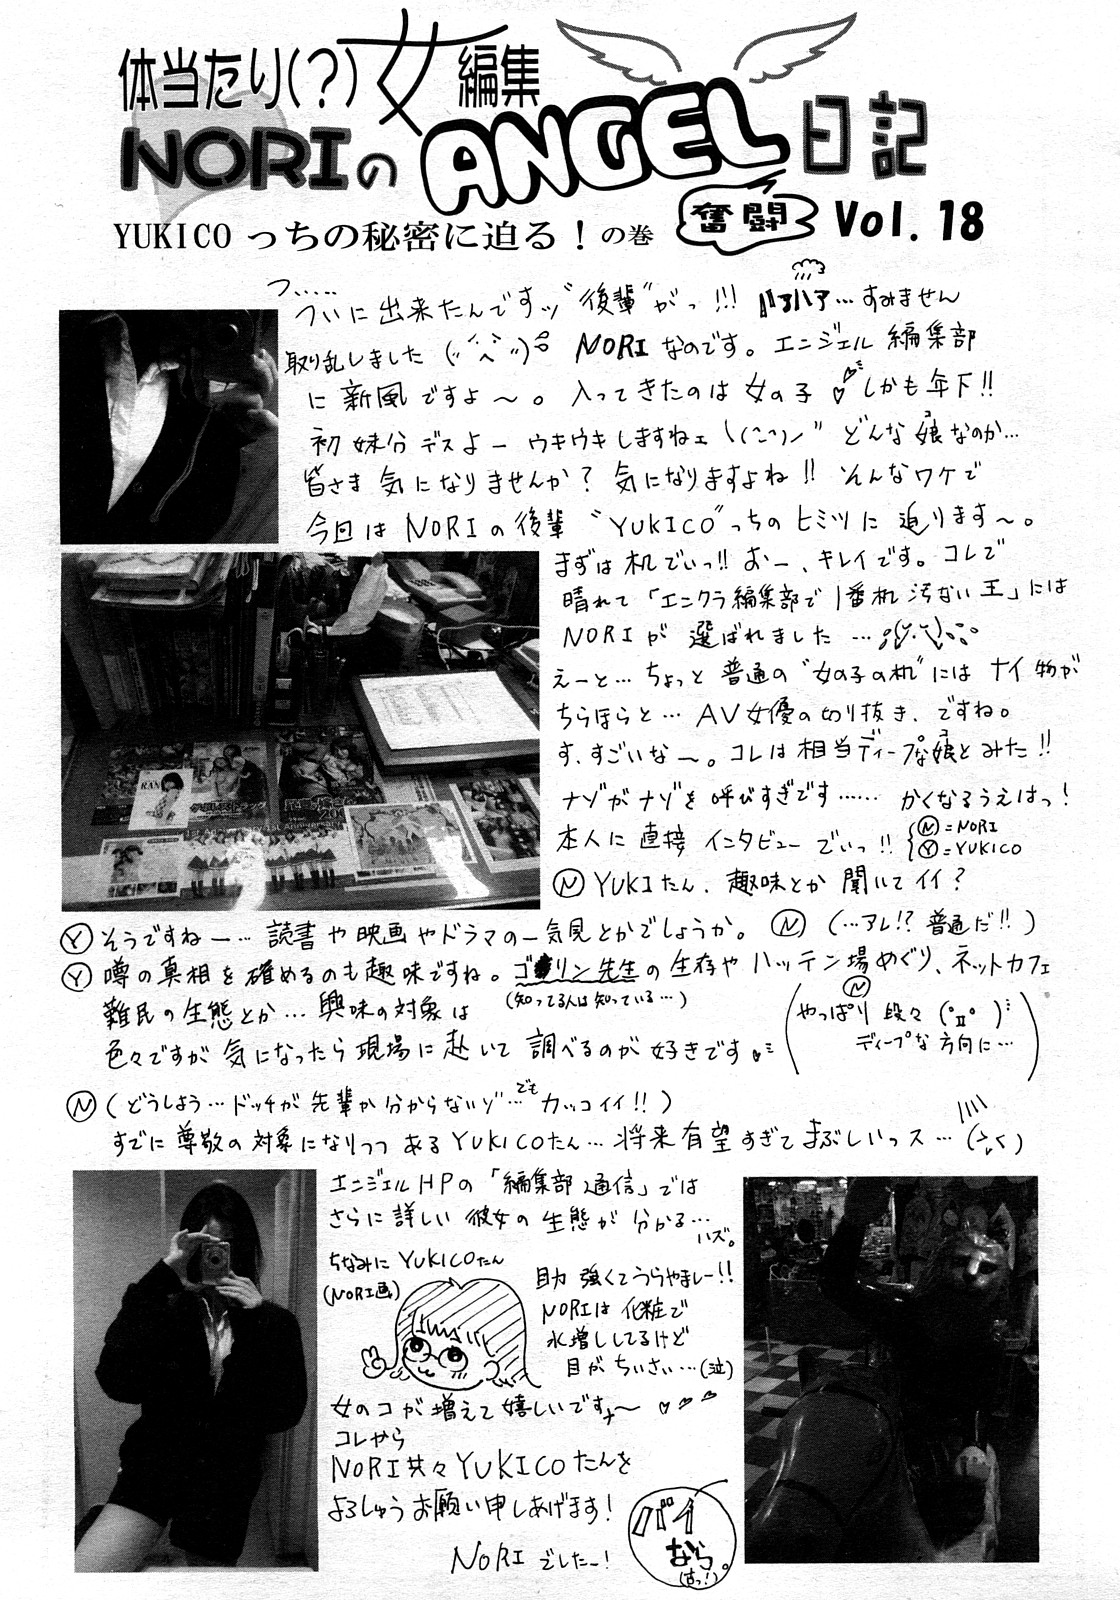 体当たり(?)女編集
NORIのANGEL日記
奮闘
Vol. 18
YUKICOっちの秘密に迫る!の巻
つ‥‥‥
ついに出来たんですッ"後輩"がっ!!! ハァハァ…すみません
取り乱しました NORIなのです。エンジェル編集部
に新風ですよ〜。入ってきたのは女の子♡しかも年下!!
初妹分デスよー ウキウキしますねェ どんな娘なのか…
コ
皆さま気になりませんか?気になりますよね!!そんなワケで
今回はNORIの後輩"YUKICO"っちのヒミツに迫ります〜。
まずは机でいっ!!おー、キレイです。コレで
晴れて「エンクラ編集部で1番机汚ない王」には
NORIが選ばれました…
えーと…ちょっと普通の"女の子の机"にはナイ物が
ちらほらと…AV女優の切り抜き、ですね。
す、すごいな〜。コレは相当ディープな娘とみた!!
コ
ナゾがナゾを呼びすぎです……かくなるうえはっ!
本人に直接インタビューでいっ!!
Ⓝ=NORI
Ⓨ=YUKICO
Ⓝ YUKIたん、趣味とか聞いてイイ?
Ⓨ そうですねー…読書や映画やドラマの一気見とかでしょうか。 Ⓝ(…アレ!?普通だ!!)
Ⓨ 噂の真相を確めるのも趣味ですね。ゴ リン先生の生存やハッテン場めぐり、ネットカフェ
(知ってる人は知っている…)
難民の生態とか…興味の対象は
色々ですが気になったら現場に赴いて調べるのが好きです♡
Ⓝ
(やっぱり段々
ディープな方向に…)
Ⓝ(どうしよう…ドッチが先輩か分からないゾ…でもカッコイイ!!)
すでに尊敬の対象になりつつあるYUKICOたん…将来有望すぎてまぶしいっス…
エンジェルHPの「編集部通信」では
さらに詳しい彼女の生態が分かる…
ハズ。
ちなみにYUKICOたん
(NORI画)
目力強くてうらやましー!!
NORIは化粧で
水増ししてるけど
目がちいさい…(泣)
女のコが増えて嬉しいですナ〜♡♡♡
コレから
NORI共々YUKICOたんを
よろしゅうお願い申しあげます!
NORIでしたー!
バイ
なら
(すっ!)。
RAN